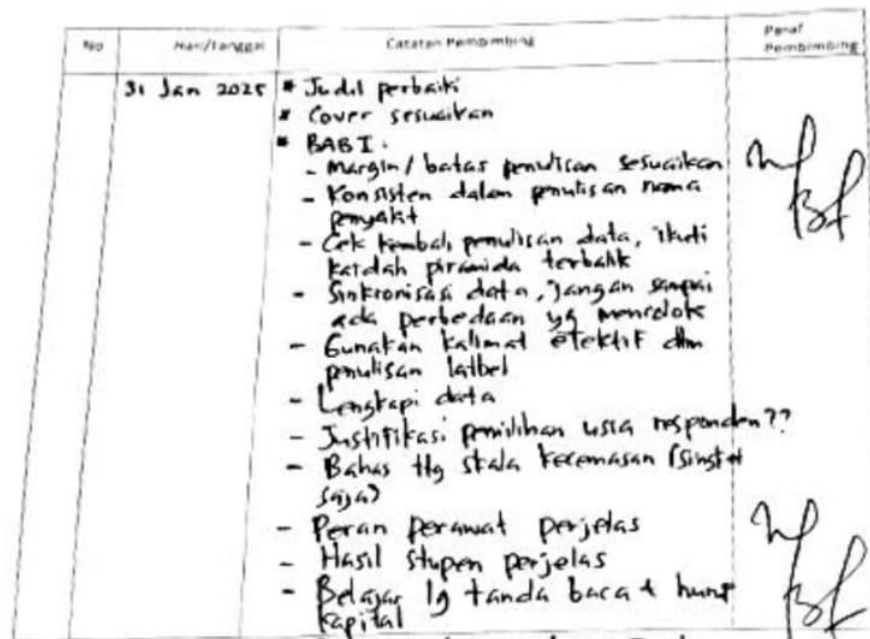 No Hari/Tanggal Catatan Pembimbing Paraf Pembimbing
31 Jan 2025 * Judul perbaiki
* Cover sesuaikan
* BAB I.
- Margin / batas penulisan sesuaikan
- Konsisten dalam penulisan nama
penyakit
- Cek kembali penulisan data, ikuti
kaidah piramida terbalik
- Sinkronisasi data, jangan sampai
ada perbedaan yg mencolok
- Gunakan kalimat efektif dlm
penulisan latbel
- Lengkapi data
- Justifikasi pemilihan usia responden??
- Bahas ttg skala kecemasan (singkat
saja)
- Peran perawat perjelas
- Hasil stupen perjelas
- Belajar lg tanda baca & huruf
kapital